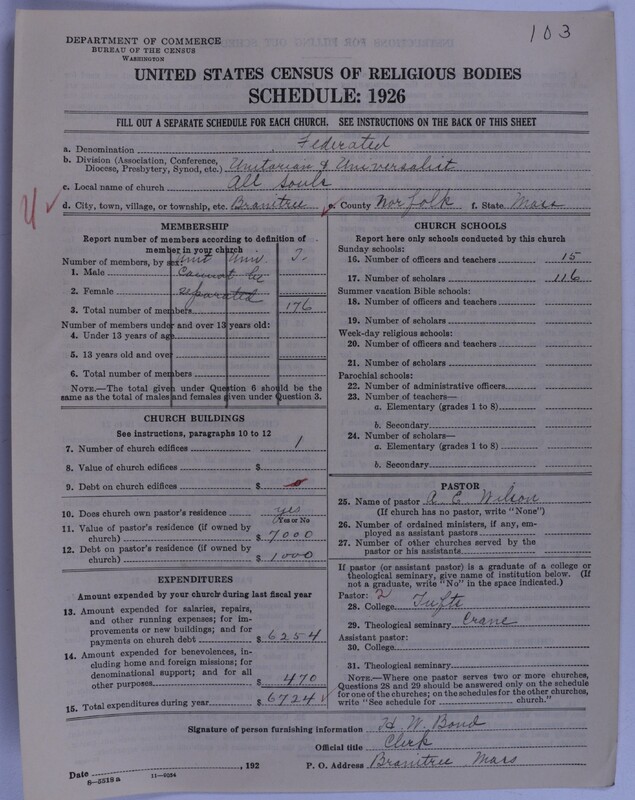 103
DEPARTMENT OF COMMERCE
BUREAU OF THE CENSUS
WASHINGTON
UNITED STATES CENSUS OF RELIGIOUS BODIES
SCHEDULE: 1926
FILL OUT A SEPARATE SCHEDULE FOR EACH CHURCH. SEE INSTRUCTIONS ON THE BACK OF THIS SHEET
a. Denomination Federated
b. Division (Association, Conference,
Diocese, Presbytery, Synod, etc.) Unitarian & Universalist
c. Local name of church All Souls
d. City, town, village, or township, etc. Braintree e. County Norfolk f. State Mass
MEMBERSHIP
Report number of members according to definition of
member in your church
Number of members, by sex: Unit Univ. T.
1. Male Cannot be
2. Female separated
3. Total number of members 176
Number of members under and over 13 years old:
4. Under 13 years of age
5. 13 years old and over
6. Total number of members
NOTE.—The total given under Question 6 should be the
same as the total of males and females given under Question 3.
CHURCH BUILDINGS
See instructions, paragraphs 10 to 12
7. Number of church edifices 1
8. Value of church edifices $
9. Debt on church edifices $ 0
10. Does church own pastor's residence yes
(Yes or No)
11. Value of pastor's residence (if owned by
church) $ 7000
12. Debt on pastor's residence (if owned by
church) $ 1000
EXPENDITURES
Amount expended by your church during last fiscal year
13. Amount expended for salaries, repairs,
and other running expenses; for im-
provements or new buildings; and for
payments on church debt $ 6254
14. Amount expended for benevolences, in-
cluding home and foreign missions; for
denominational support; and for all
other purposes $ 470
15. Total expenditures during year $ 6724
CHURCH SCHOOLS
Report here only schools conducted by this church
Sunday schools:
16. Number of officers and teachers 15
17. Number of scholars 116
Summer vacation Bible schools:
18. Number of officers and teachers
19. Number of scholars
Week-day religious schools:
20. Number of officers and teachers
21. Number of scholars
Parochial schools:
22. Number of administrative officers
23. Number of teachers—
a. Elementary (grades 1 to 8)
b. Secondary
24. Number of scholars—
a. Elementary (grades 1 to 8)
b. Secondary
PASTOR
25. Name of pastor A. E. Wilson
(If church has no pastor, write "None")
26. Number of ordained ministers, if any, em-
ployed as assistant pastors
27. Number of other churches served by the
pastor or his assistants
If pastor (or assistant pastor) is a graduate of a college or
theological seminary, give name of institution below. (If
not a graduate, write "No" in the space indicated.)
Pastor: 2
28. College Tufts
29. Theological seminary Crane
Assistant pastor:
30. College
31. Theological seminary
NOTE.—Where one pastor serves two or more churches,
Questions 28 and 29 should be answered only on the schedule
for one of the churches; on the schedules for the other churches,
write "See schedule for church."
Signature of person furnishing information H. W. Bond
Official title Clerk
Date , 192 P. O. Address Braintree Mass
8—5518 a 11—9034